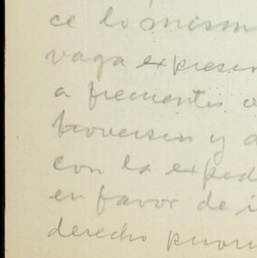 ce lo mism
vaga expresi
a frecuentes
troversia y a
con la exped
en favor de i
derecho priori